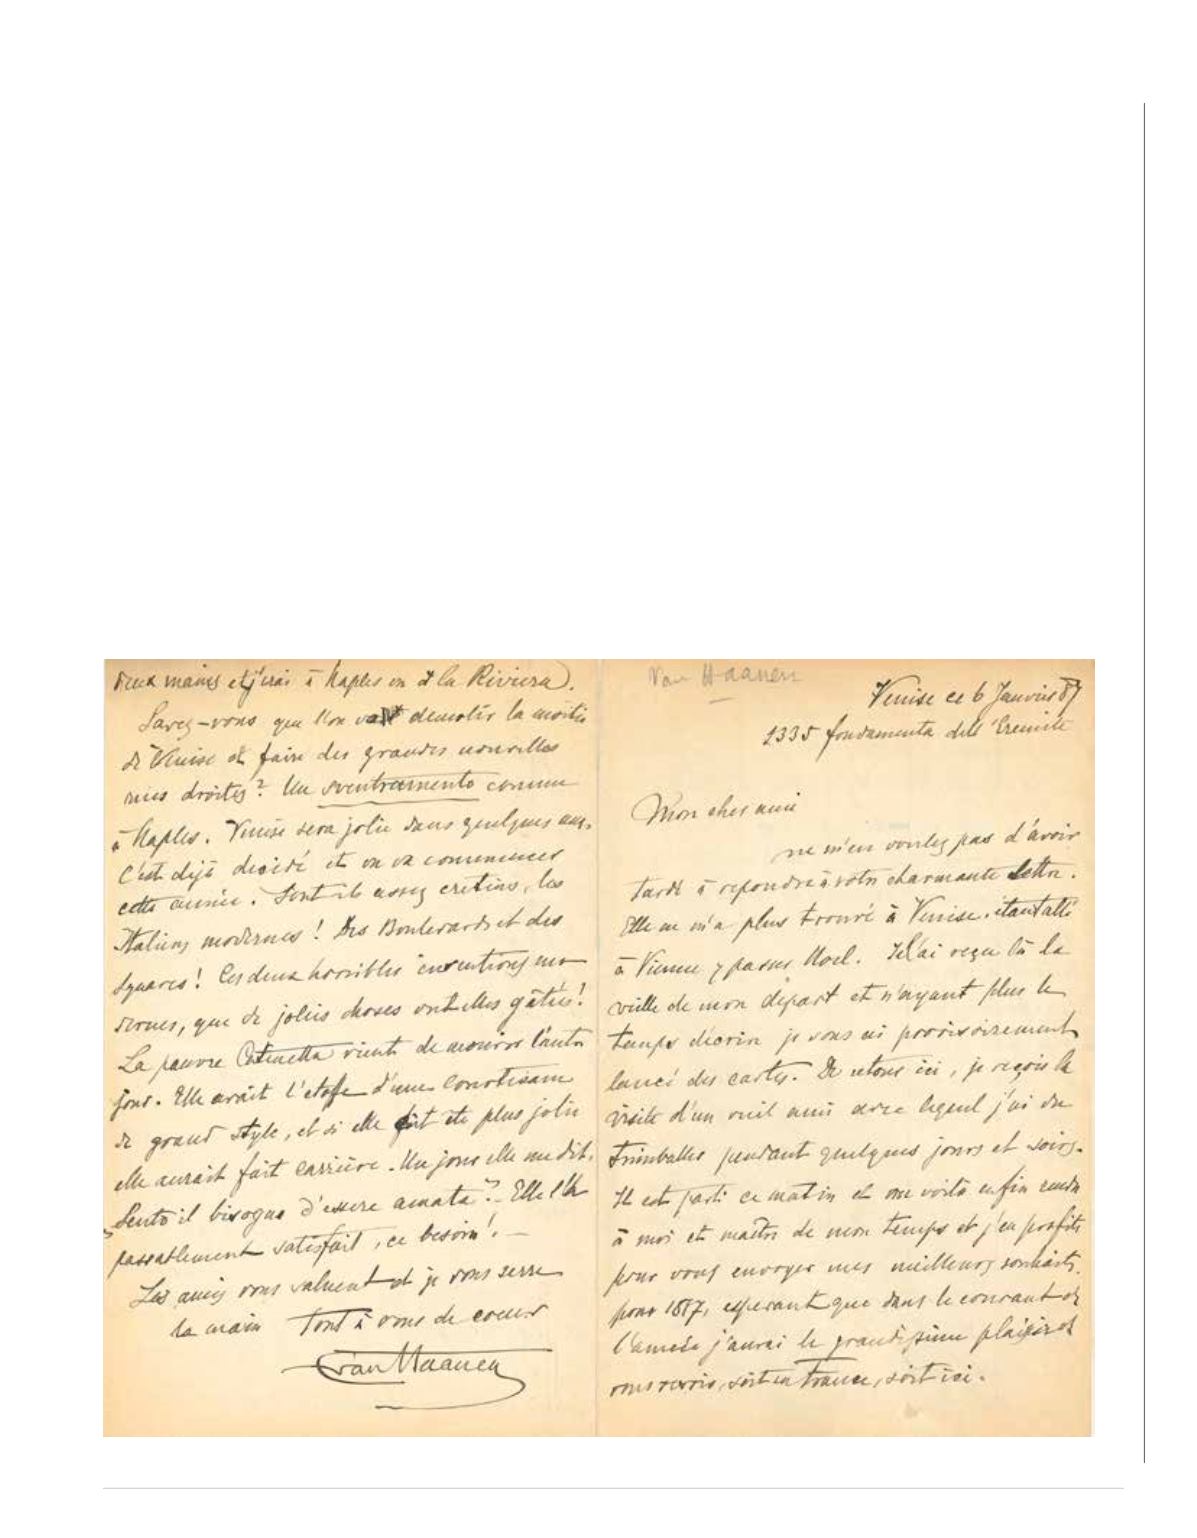 Van Haanen
Venise ce 6 Janvier 87
2335 fondamenta dell' Eremite
Mon cher ami
ne m'en voulez pas d'avoir
tardé à repondre à votre charmante lettre.
Elle ne m'a plus trouvé à Venise, étant allé
à Vienne y passer Noel. Je l'ai reçu là la
veille de mon départ et n'ayant plus le
temps d'écrire je vous ai provisoirement
lancé des cartes. De retour ici, je reçois la
visite d'un vieil ami avec lequel j'ai du
trimballer pendant quelques jours et soirs.
Il est parti ce matin et me voilà enfin rendu
à moi et maître de mon temps et j'en profite
pour vous envoyer mes meilleurs souhaits
pour 1887, esperant que dans le courant de
l'année j'aurai le grandissime plaisir de
vous revoir, soit en France, soit ici.
deux mains et j'irai à Naples ou à la Riviera).
Savez-vous que l'on va demolir la moitié
de Venise et faire des grandes nouvelles
rues droites? Un sventramento comme
à Naples. Venise sera jolie dans quelques ans.
C'est dejà decidé et on va commencer
cette année. Sont-ils assez cretins, les
Italiens modernes! Des Boulevards et des
Squares! Ces deux horribles inventions mo
dernes, que de jolies choses ont elles gâtées!
La pauvre Catinetta vient de mourir l'autre
jour. Elle avait l'etoffe d'une Courtisane
de grand style, et si elle fût été plus jolie
elle aurait fait carrière. Un jour elle me dit:
"Sento il bisogno d'essere amata". Elle l'a
passablement satisfait, ce besoin! —
Les amis vous saluent et je vous serre
la main Tout à vous de coeur
CvanHaanen